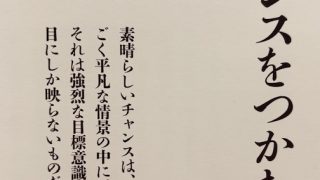 ンスをつか
素晴らしいチャンスは、
ごく平凡な情景の中に
それは強烈な目標意識
目にしか映らないものだ